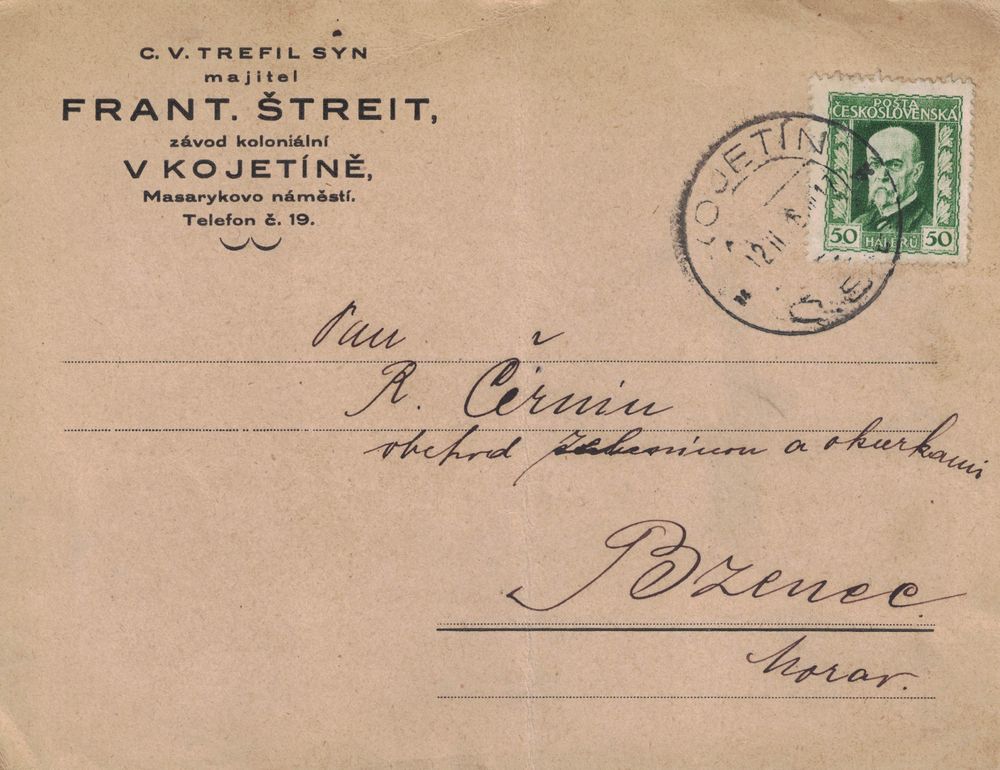 C. V. TREFIL SYN
majitel
FRANT. ŠTREIT,
závod koloniální
V KOJETÍNĚ,
Masarykovo náměstí.
Telefon č. 19.
POŠTA
ČESKOSLOVENSKÁ
50 HALÉŘŮ 50
KOJETÍN
12 II
Pan
R. Černin
obchod zeleninou a okurkami
Bzenec
Morav.